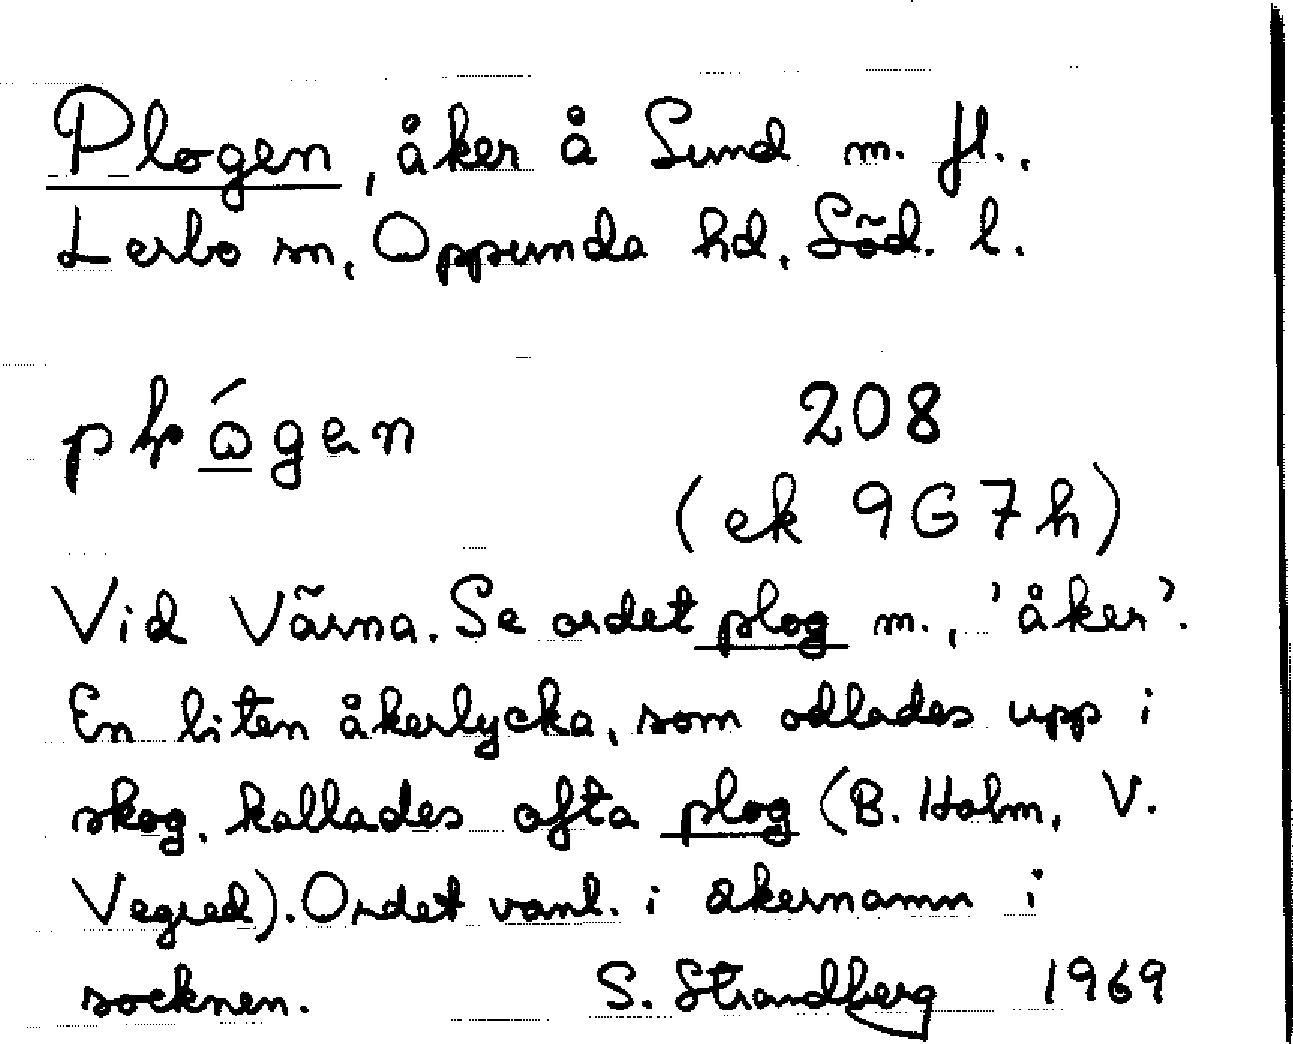 Plogen, åker å Sund m. fl.,
Lerbo sn, Oppunda hd, Söd. l.
208
(ek 9G7h)
Vid Värna. Se ordet plog m., 'åker'.
En liten åkerlycka, som odlades upp i
skog, kallades ofta plog (B. Holm, V.
Vegred). Ordet vanl. i åkernamn i
socknen. S. Strandberg 1969